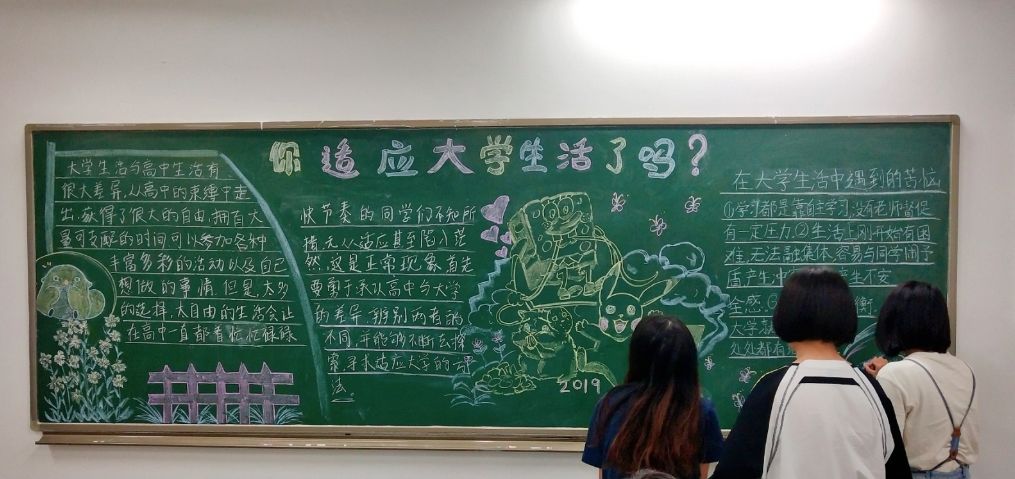 你适应大学生活了吗?
大学生活与高中生活有
很大差异,从高中的束缚中走
出,获得了很大的自由,拥有大
量可支配的时间可以参加各种
丰富多彩的活动以及自己
想做的事情.但是,太多
的选择,太自由的生活会让
在高中一直都看忙忙碌碌
快节奏的同学们不知所
措,无从适应甚至陷入茫
然.这是正常现象.首先
要勇于承认高中与大学
的差异,辨别两者的
不同,并能够不断去探
索,寻求适应大学的
法.
2019
在大学生活中遇到的苦恼
①学习都是靠自主学习,没有老师督促
有一定压力.②生活上刚开始有困
难,无法融集体,容易与同学闹矛
盾产生冲 产生不安
全感. 衡
大学
处处都有